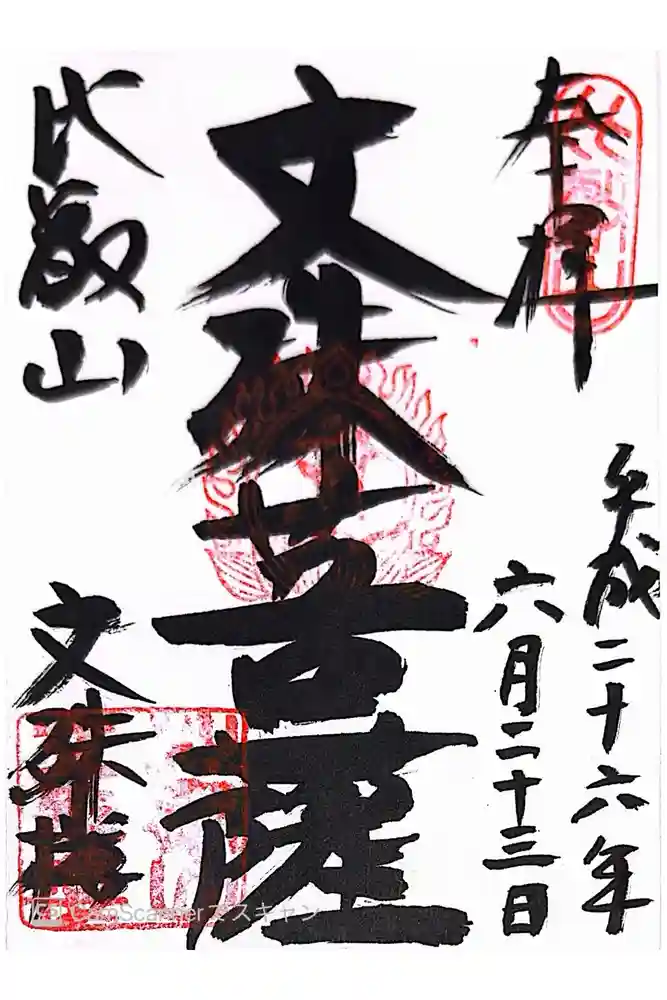 奉拝
平成二十六年
六月二十三日
文殊菩薩
比叡山
文殊楼
CamScannerでスキャン